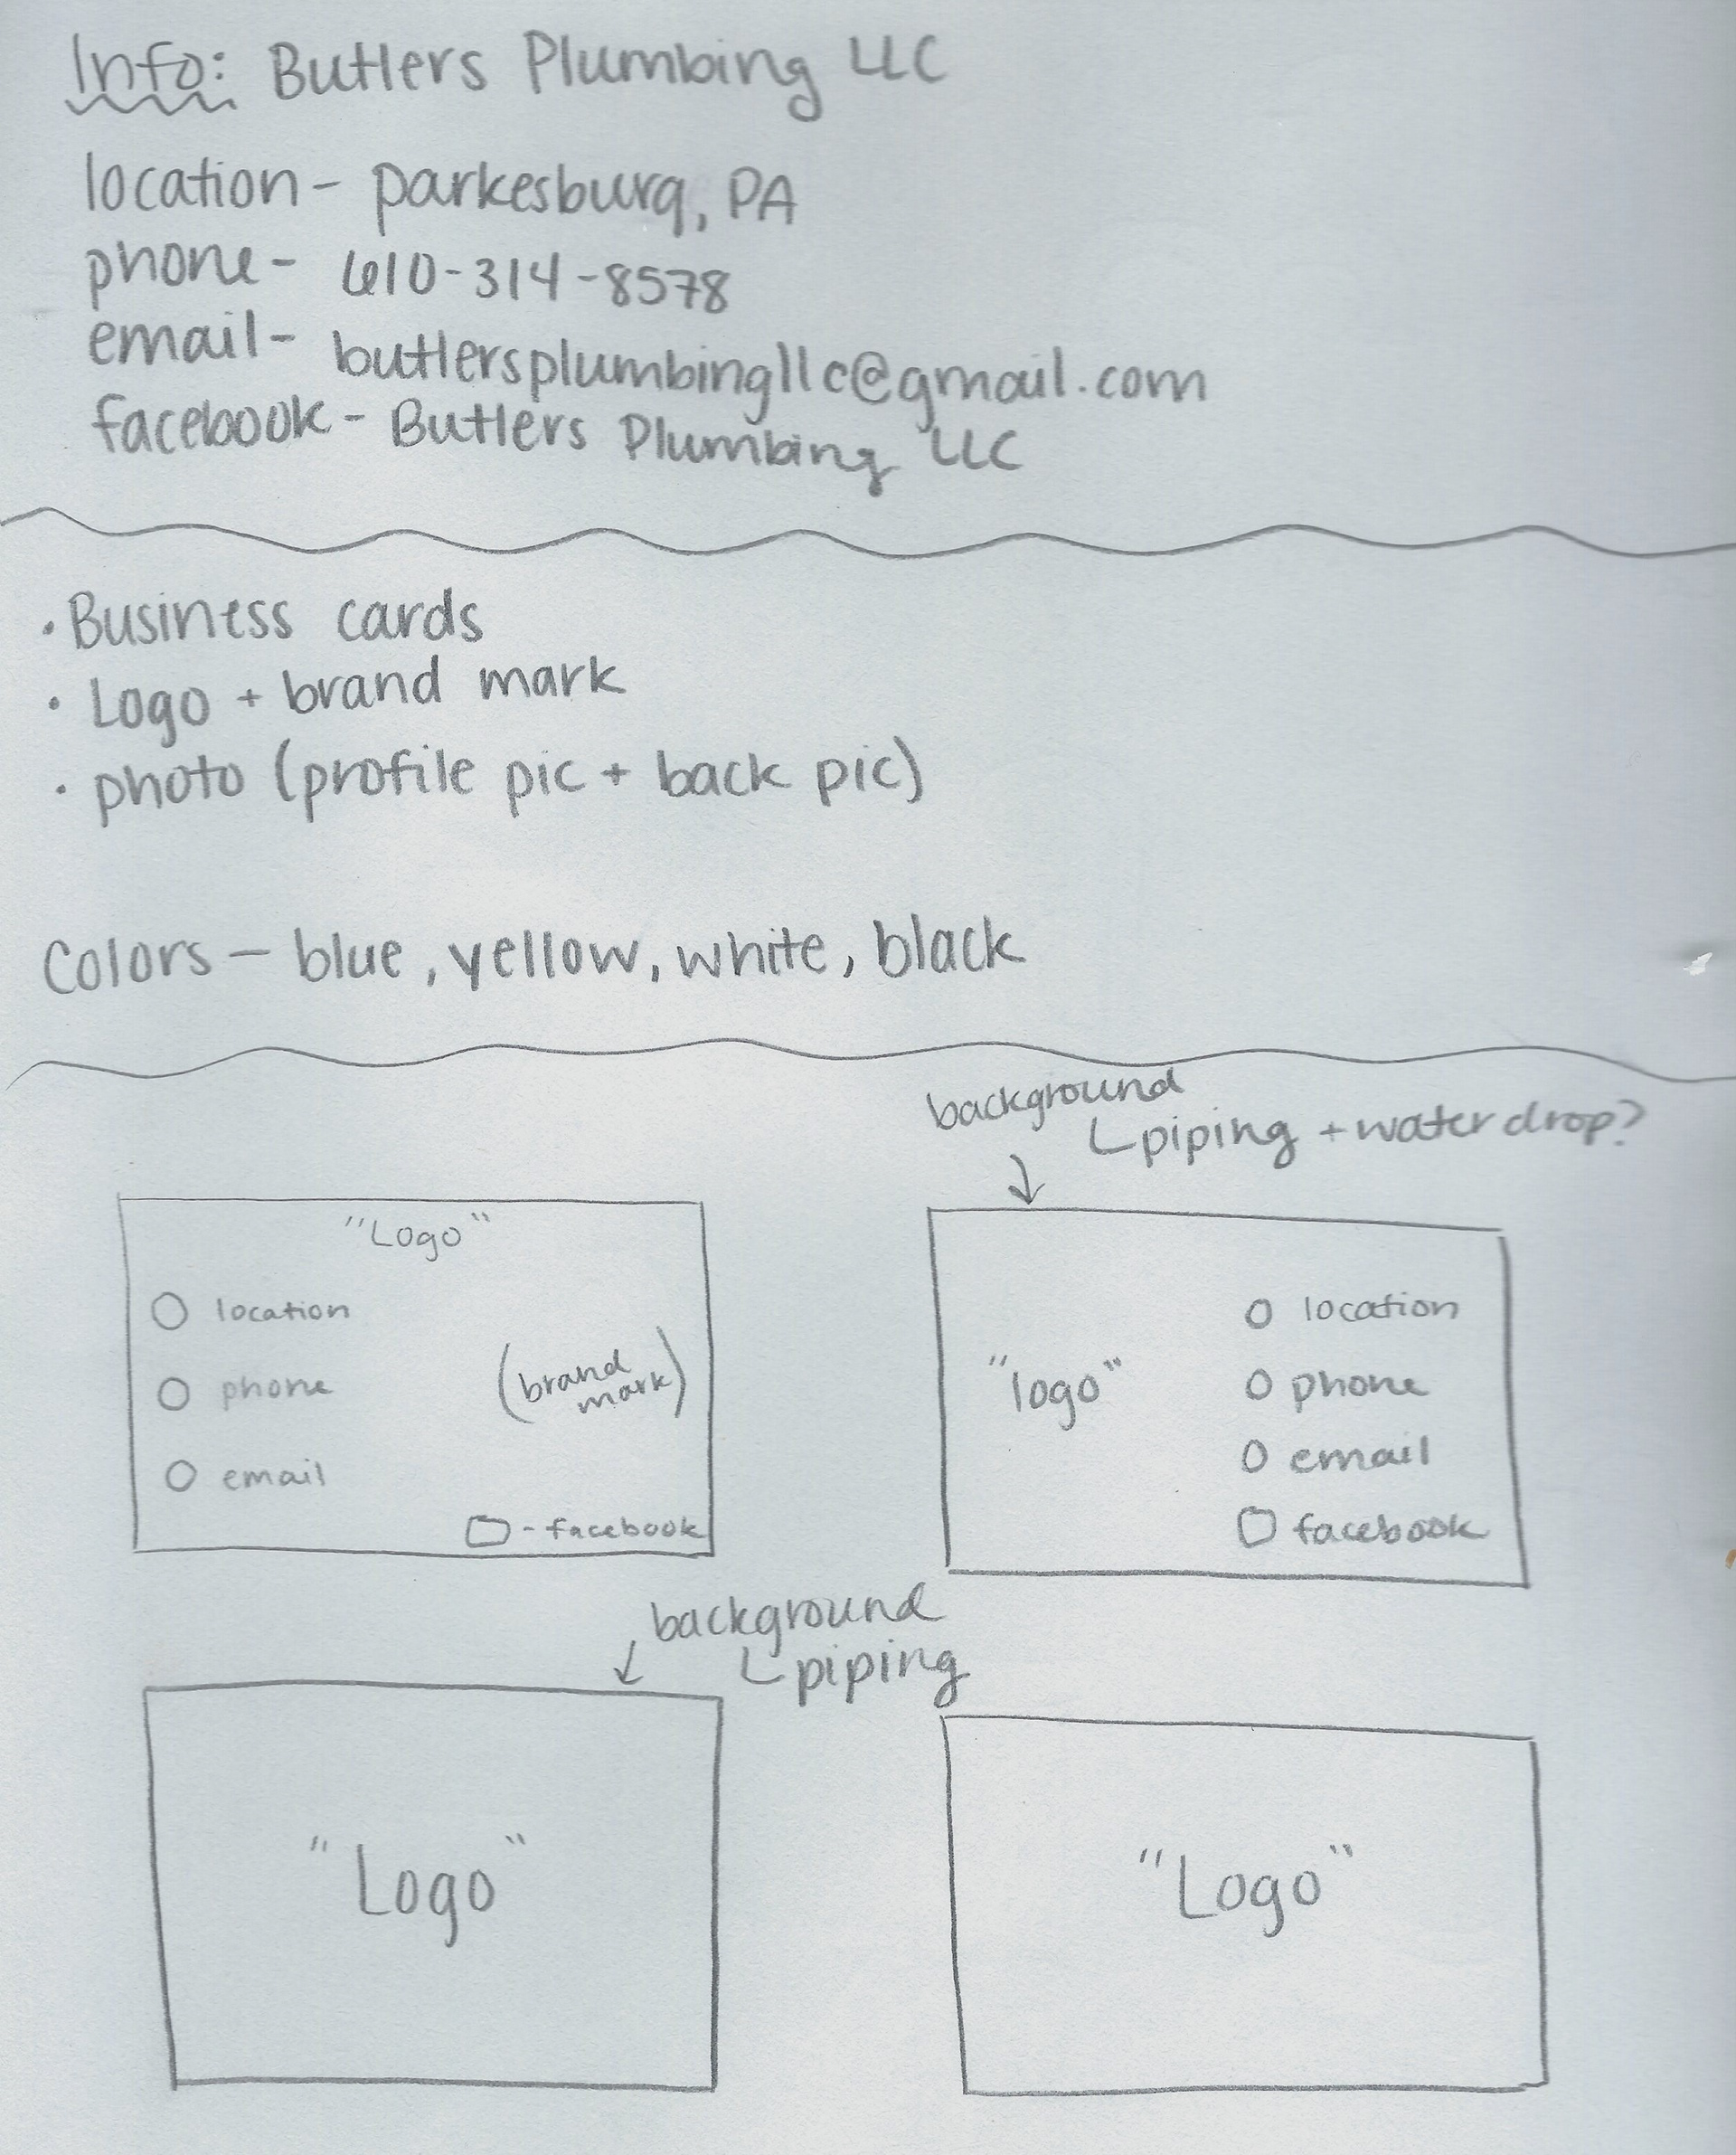 Info: Butlers Plumbing LLC
location - parkesburg, PA
phone - 610-314-8578
email - butlersplumbingllc@gmail.com
facebook - Butlers Plumbing LLC
• Business cards
• Logo + brand mark
• photo (profile pic + back pic)
Colors — blue, yellow, white, black
background
piping + water drop?
"Logo"
location
phone
(brand
mark)
email
- facebook
"logo"
location
phone
email
facebook
background
piping
"Logo"
"Logo"